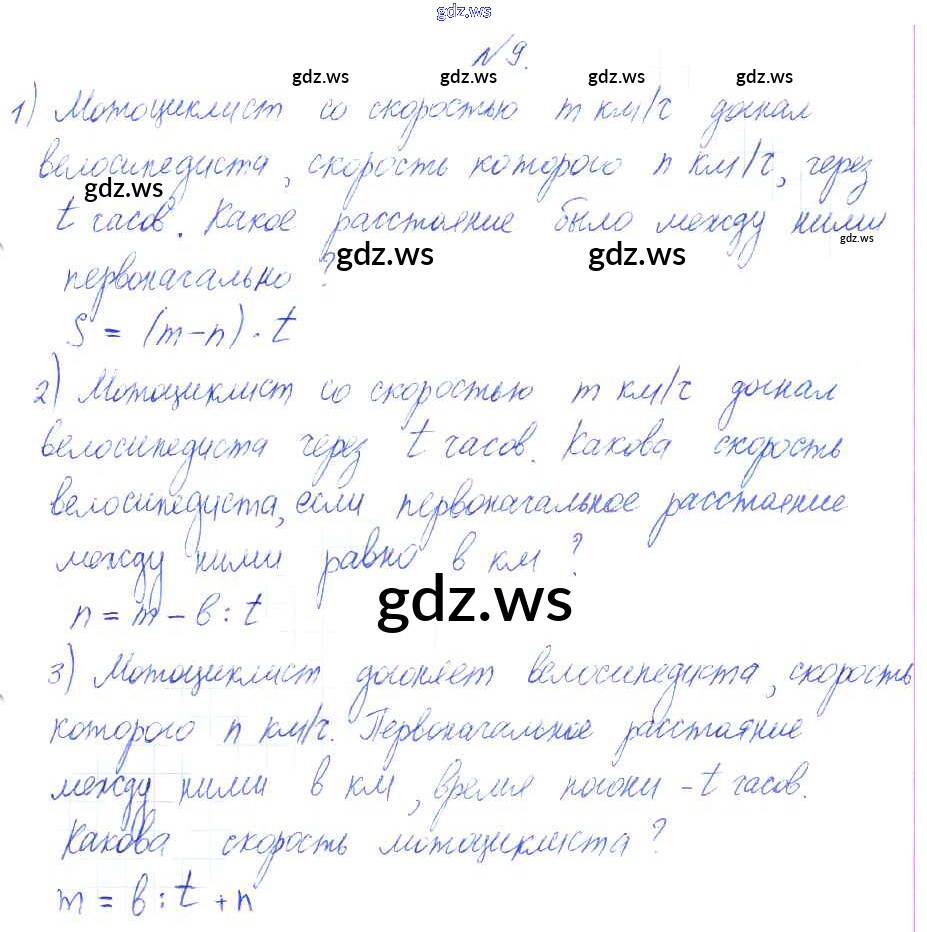 gdz.ws
№ 9.
gdz.ws gdz.ws gdz.ws gdz.ws
1) Мотоциклист со скоростью m км/ч догнал
велосипедиста, скорость которого n км/ч, через
gdz.ws
t часов. Какое расстояние было между ними
gdz.ws gdz.ws gdz.ws
первоначально?
S = (m-n)·t
2) Мотоциклист со скоростью m км/ч догнал
велосипедиста через t часов. Какова скорость
велосипедиста, если первоначальное расстояние
между ними равно в км?
gdz.ws
n = m - в : t
3) Мотоциклист догоняет велосипедиста, скорость
которого n км/ч. Первоначальное расстояние
между ними в км, время погони - t часов.
Какова скорость мотоциклиста?
m = в : t + n